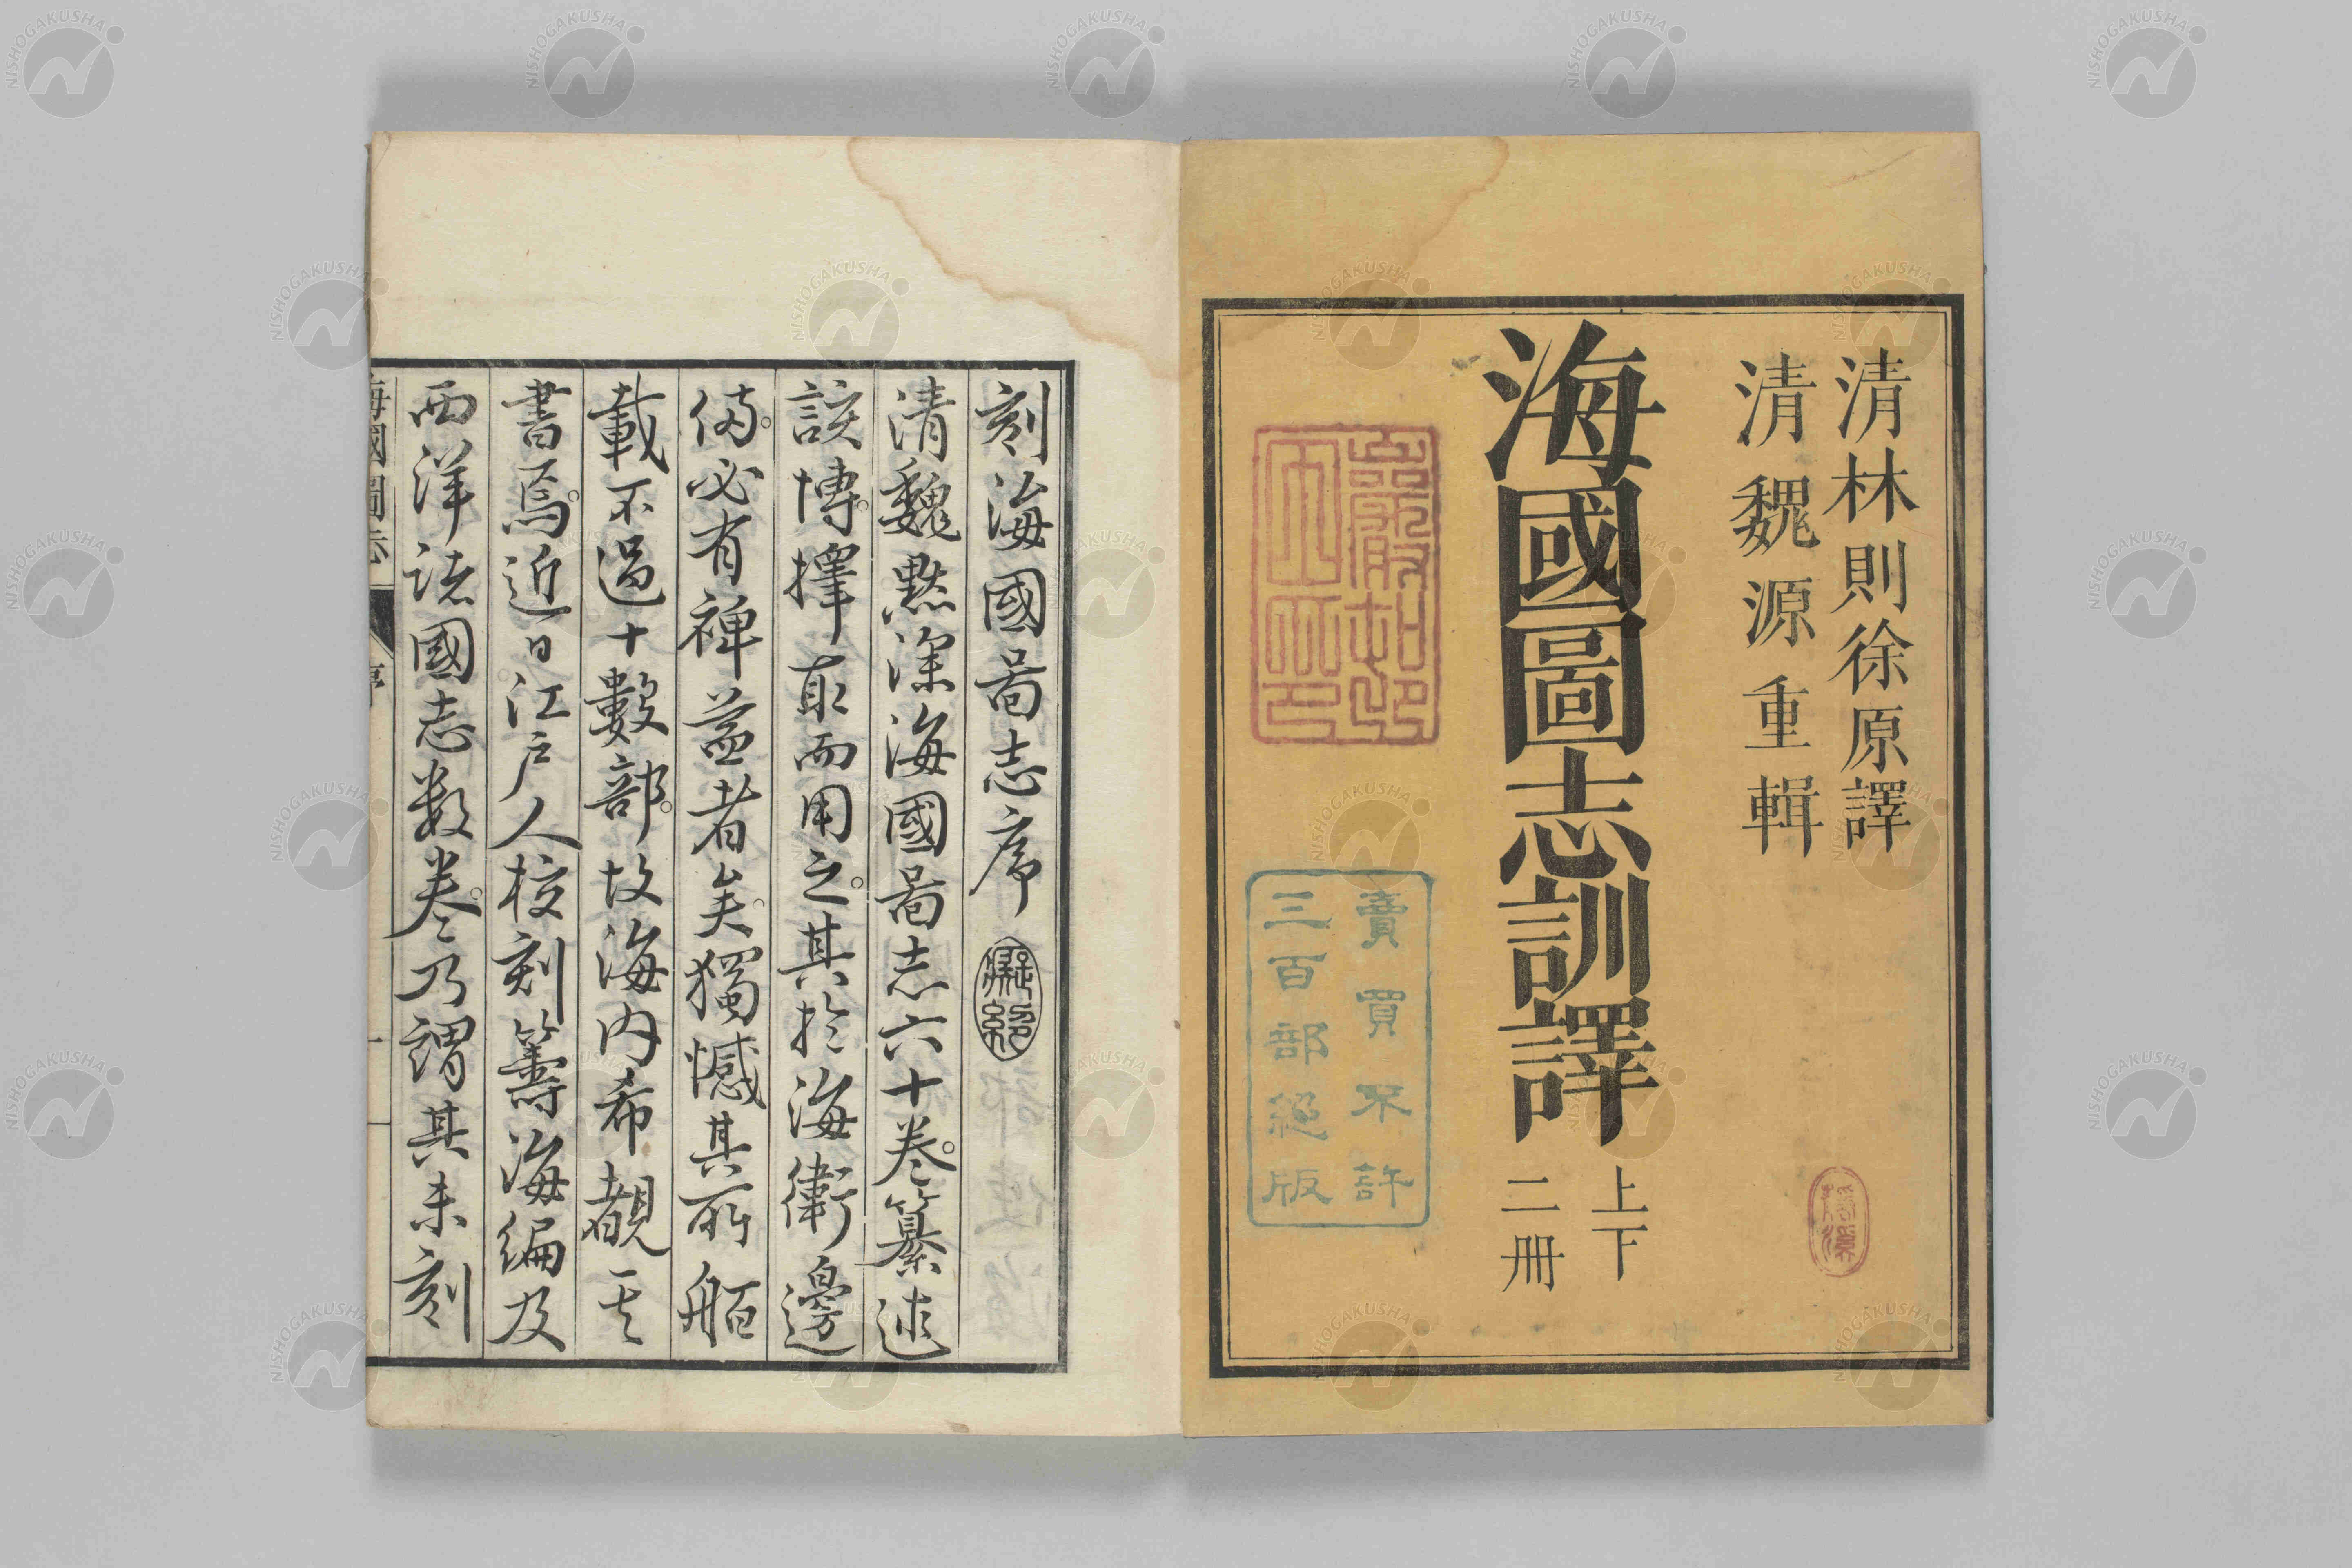 清林則徐原譯
清魏源重輯
海國圖志訓譯
上下
二冊
賣買不許
三百部絕版
刻海國啚志序
凝絕
清魏黙深海國啚志六十卷。纂述
該博。擇取而用之。其於海衛邊
俻。必有裨益者矣。獨憾其所舶
載不過十數部。故海內希覩其
書焉。近日江戶人校刻籌海編及
西洋諸國志数卷。乃謂其未刻
海國圖志
序
NISHOGAKUSHA